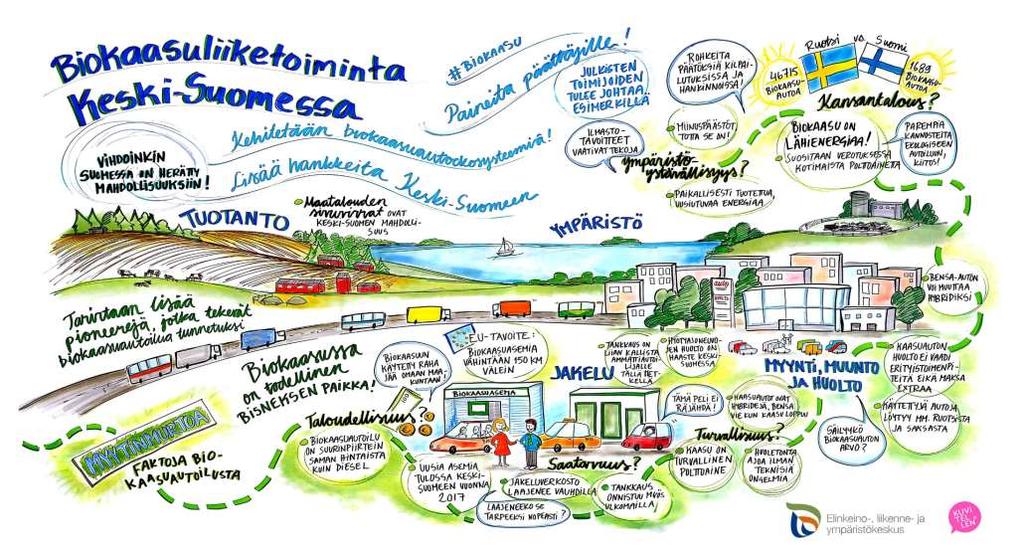 BIOKAASULIIKETOIMINTA
KESKI-SUOMESSA
#BIOKAASU
Paineita päättäjille!
Kehitetään biokaasuautoekosysteemiä!
Lisää hankkeita Keski-Suomeen
VIHDOINKIN
SUOMESSA ON HERÄTTY
MAHDOLLISUUKSIIN!
JULKISTEN
TOIMIJOIDEN
TULEE JOHTAA
ESIMERKILLÄ
ROHKEITA
PÄÄTÖKSIÄ KILPAI-
LUTUKSISSA JA
HANKINNOISSA!
Ruotsi vs. Suomi
46715
BIOKAASU-
AUTOA
1689
BIOKAASU-
AUTOA
Kansantalous?
BIOKAASU ON
LÄHIENERGIAA!
SUOSITAAN VEROTUKSESSA
KOTIMAISTA POLTTOAINETTA
PAREMPIA
KANNUSTEITA
EKOLOGISEEN
AUTOILUUN,
KIITOS!
ILMASTO-
TAVOITTEET
VAATIVAT TEKOJA
HIUKKASPÄÄSTÖT,
TOTTA SE ON!
Ympäristö-
ystävällisyys?
PAIKALLISESTI TUOTETTUA,
UUSIUTUVAA ENERGIAA
TUOTANTO
Maatalouden
sivuvirrat OVAT
KESKI-SUOMEN MAHDOLLI-
SUUS
YMPÄRISTÖ
Tarvitaan lisää
pioneerejä, jotka tekevät
biokaasuautoilua tunnetuksi
Biokaasussa
on todellinen
BISNEKSEN PAIKKA!
BIOKAASUUN
KÄYTETTY RAHA
JÄÄ OMAAN MAA-
KUNTAAN!
EU-TAVOITE:
BIOKAASUASEMIA
VÄHINTÄÄN 150 KM
VÄLEIN
TANKKAUS ON
LIIAN KALLISTA
AMMATTIAUTOI-
LIJALLE
TÄLLÄ HET-
KELLÄ
HYÖTYAJONEUVO-
JEN HUOLTO ON
HAASTE KESKI-
SUOMESSA
JAKELU
auto
HUOLTO
BENSA-AUTON
VOI MUUTTAA
HYBRIDIKSI
MYYNTI, MUUNTO
JA HUOLTO
KAASUAUTON
HUOLTO EI VAADI
ERITYISTOIMENPI-
TEITÄ EIKÄ MAKSA
EXTRAA
KÄYTETTYJÄ AUTOJA
LÖYTYY MM. RUOTSISTA
JA SAKSASTA
SÄILYYKÖ
BIOKAASUAUTON
ARVO?
BIOKAASUASEMA
TÄMÄ PELI EI
RÄJÄHDÄ!
KAASUAUTOT OVAT
HYBRIDEJÄ, BENSA
VIE KUN KAASU LOPPUU
Turvallisuus?
KAASU ON
TURVALLINEN
POLTTOAINE
HUOLETONTA
AJOA ILMAN
TEKNISIÄ
ONGELMIA
Taloudellisuus?
BIOKAASUAUTOILU
ON SUURINPIIRTEIN
SAMAN HINTAISTA
KUIN DIESEL
UUSIA ASEMIA
TULOSSA KESKI-
SUOMEEN VUONNA
2017
Saatavuus?
JAKELUVERKOSTO
LAAJENEE VAUHDILLA
LAAJENEEKO SE
TARPEEKSI NOPEASTI?
TANKKAUS
ONNISTUU MYÖS
ULKOMAILLA
MYYTINMURTOA
FAKTOJA BIO-
KAASUAUTOILUSTA
Elinkeino-, liikenne- ja
ympäristökeskus
KUVI
TEL
LEN